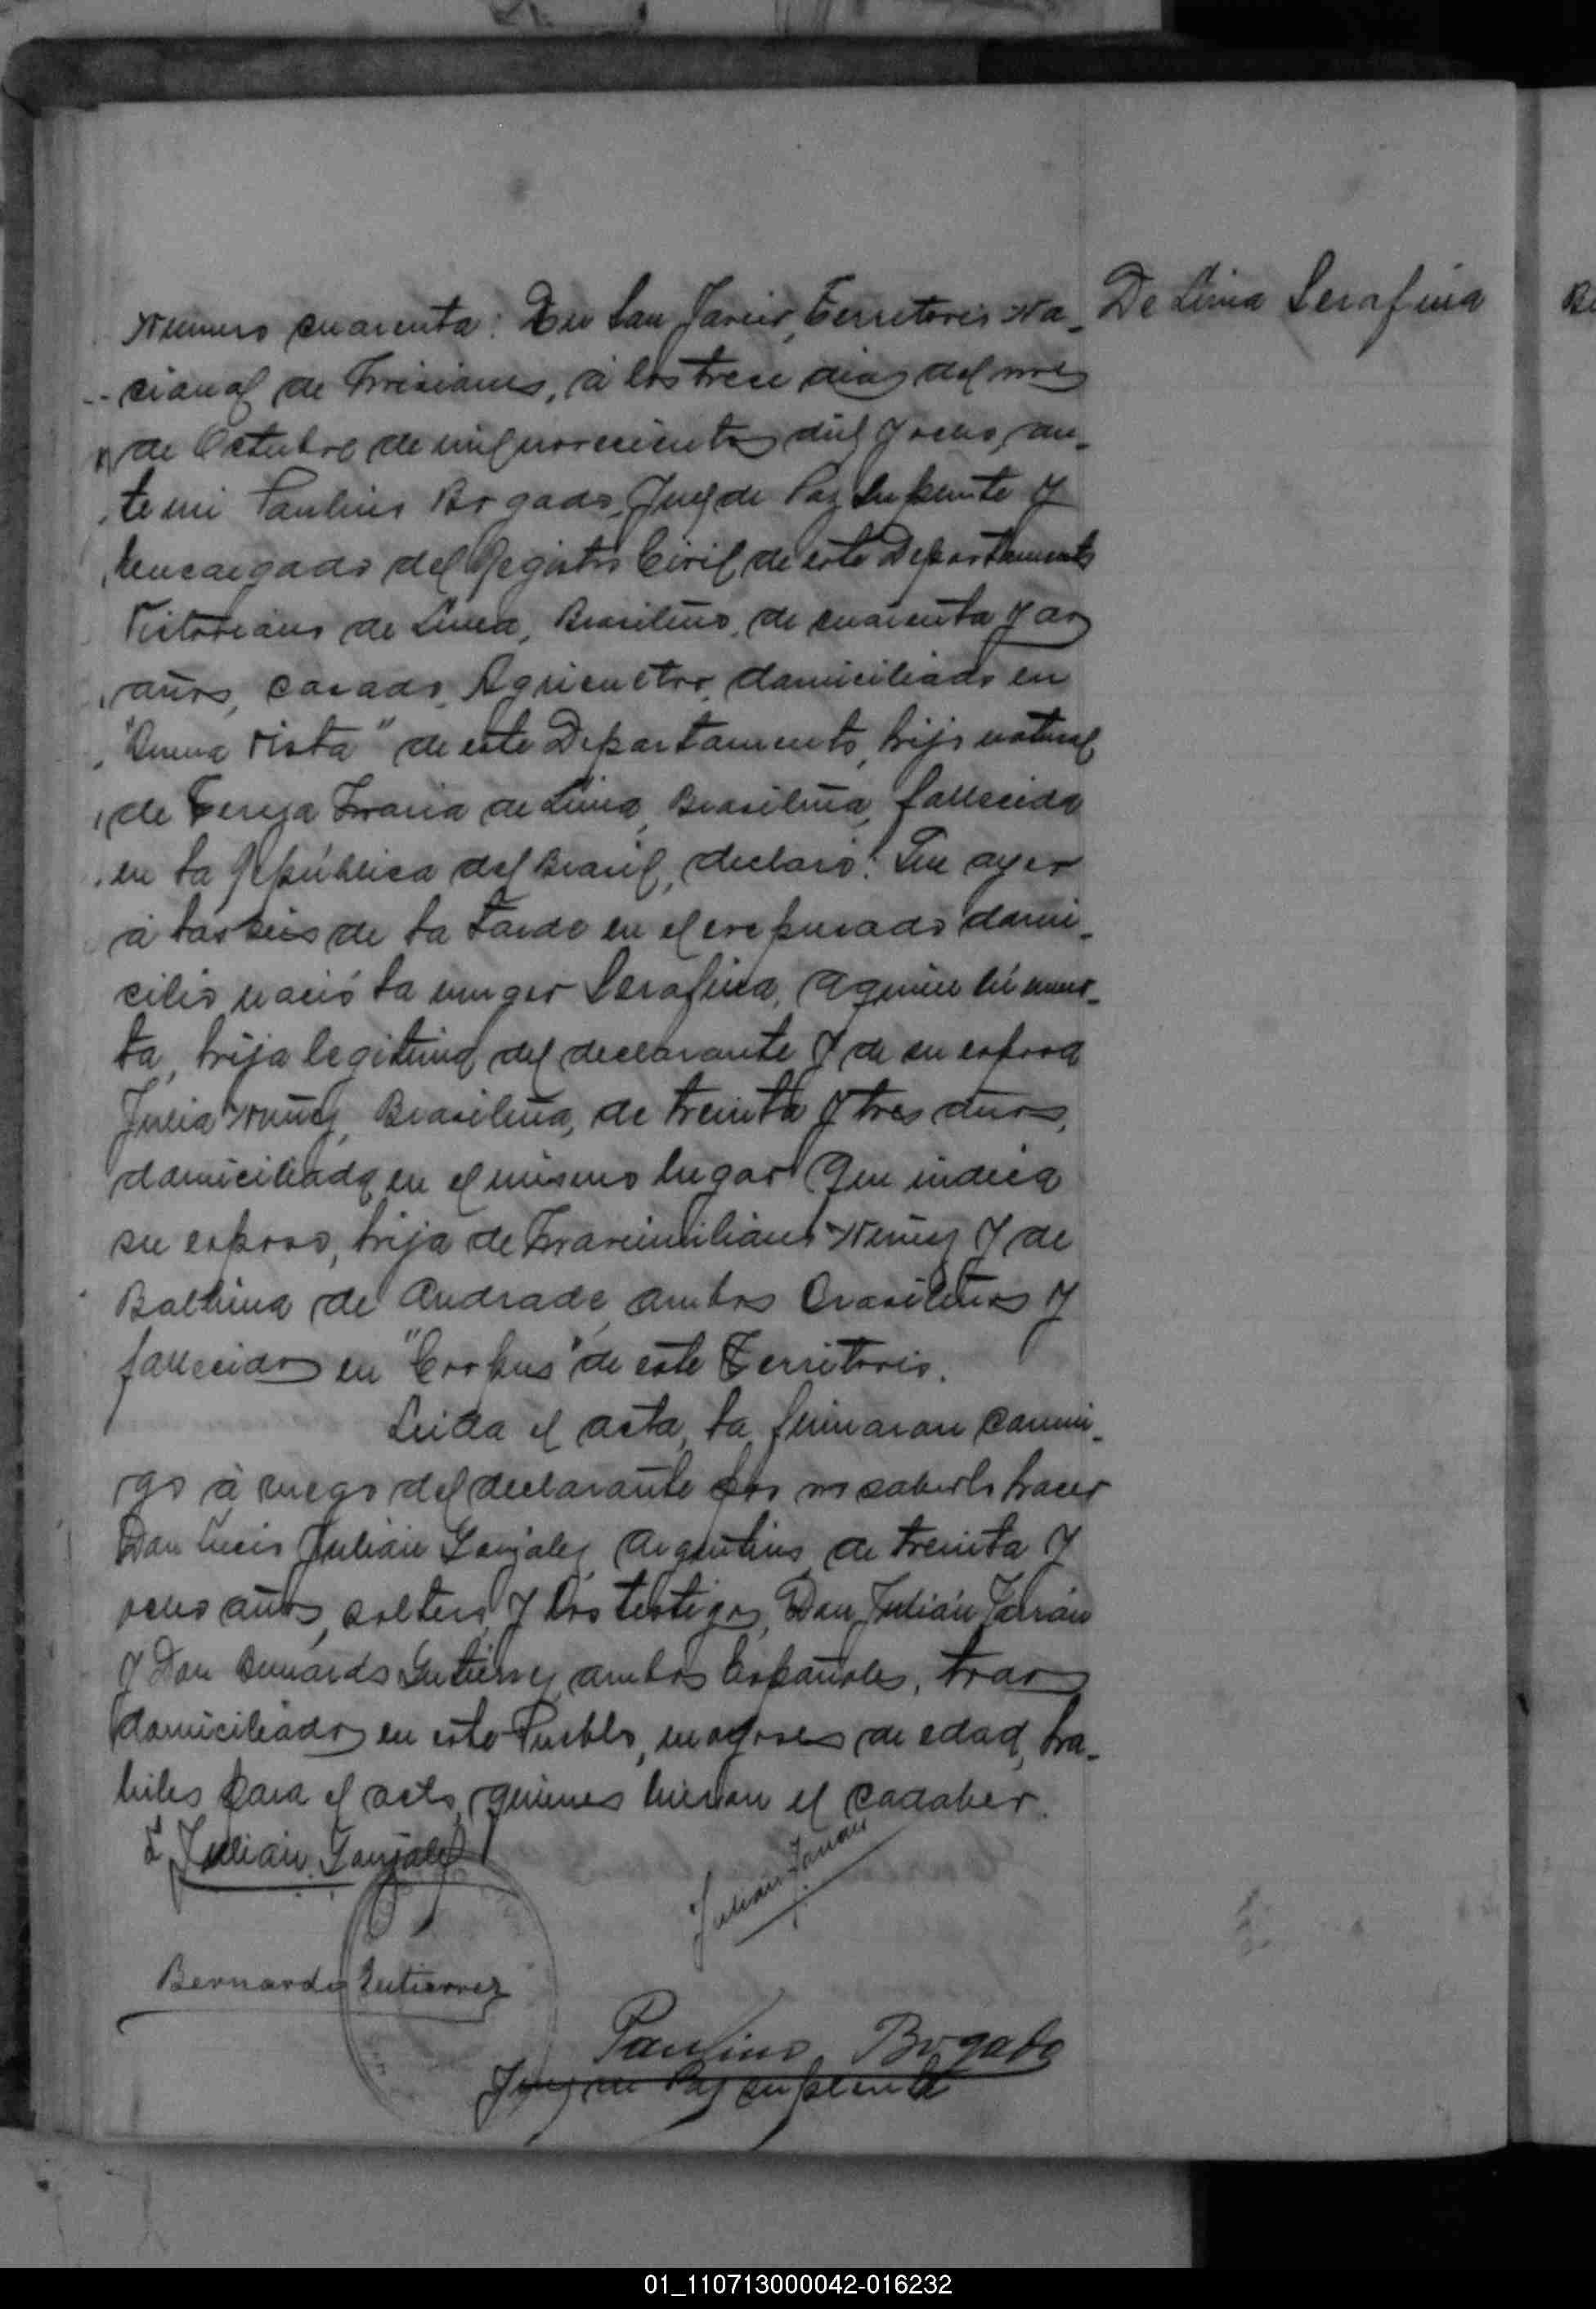 De Lima Serafina
Numero cuarenta: En San Javier, Territorio Na-
cional de Misiones, á los trece dias del mes
de Octubre de mil novecientos diez y ocho, an-
te mi Paulino Bogado, Juez de Paz Suplente y
encargado del Registro Civil de este Departamento
Victoriano de Lima, Brasileño, de cuarenta y dos
años, casado, Agricultor, domiciliado en
"Buena Vista" de este Departamento, hijo natural
de Tereza Maria de Lima, Brasileña, fallecida
en la República del Brasil, declaró: Que ayer
á las seis de la tarde en el expresado domi-
cilio nació la muger Serafina, a quien vi muer-
ta, hija legitima del declarante y de su esposa
Julia Nuñez, Brasileña, de treinta y tres años,
domiciliada en el mismo lugar que indica
su esposo, hija de Maximiliano Nuñez y de
Balbina de Andrade, ambos Brasileños y
fallecidos en "Corpus" de este Territorio.
Leida el acta, la firmaron conmi-
go á ruego del declarante por no saberlo hacer
Don Luis Julián Gonzalez, Argentino, de treinta y
ocho años, soltero, y los testigos, Don Julián Farrán
y Don Bernardo Gutierrez, ambos Españoles, todos
domiciliados en este Pueblo, mayores de edad, ha-
biles para el acto, quienes vieron el cadaber.
L Julián Gonzalez
Julian Farran
Bernardo Gutierrez
Paulino Bogado
Juez de Paz suplente
01_110713000042-016232